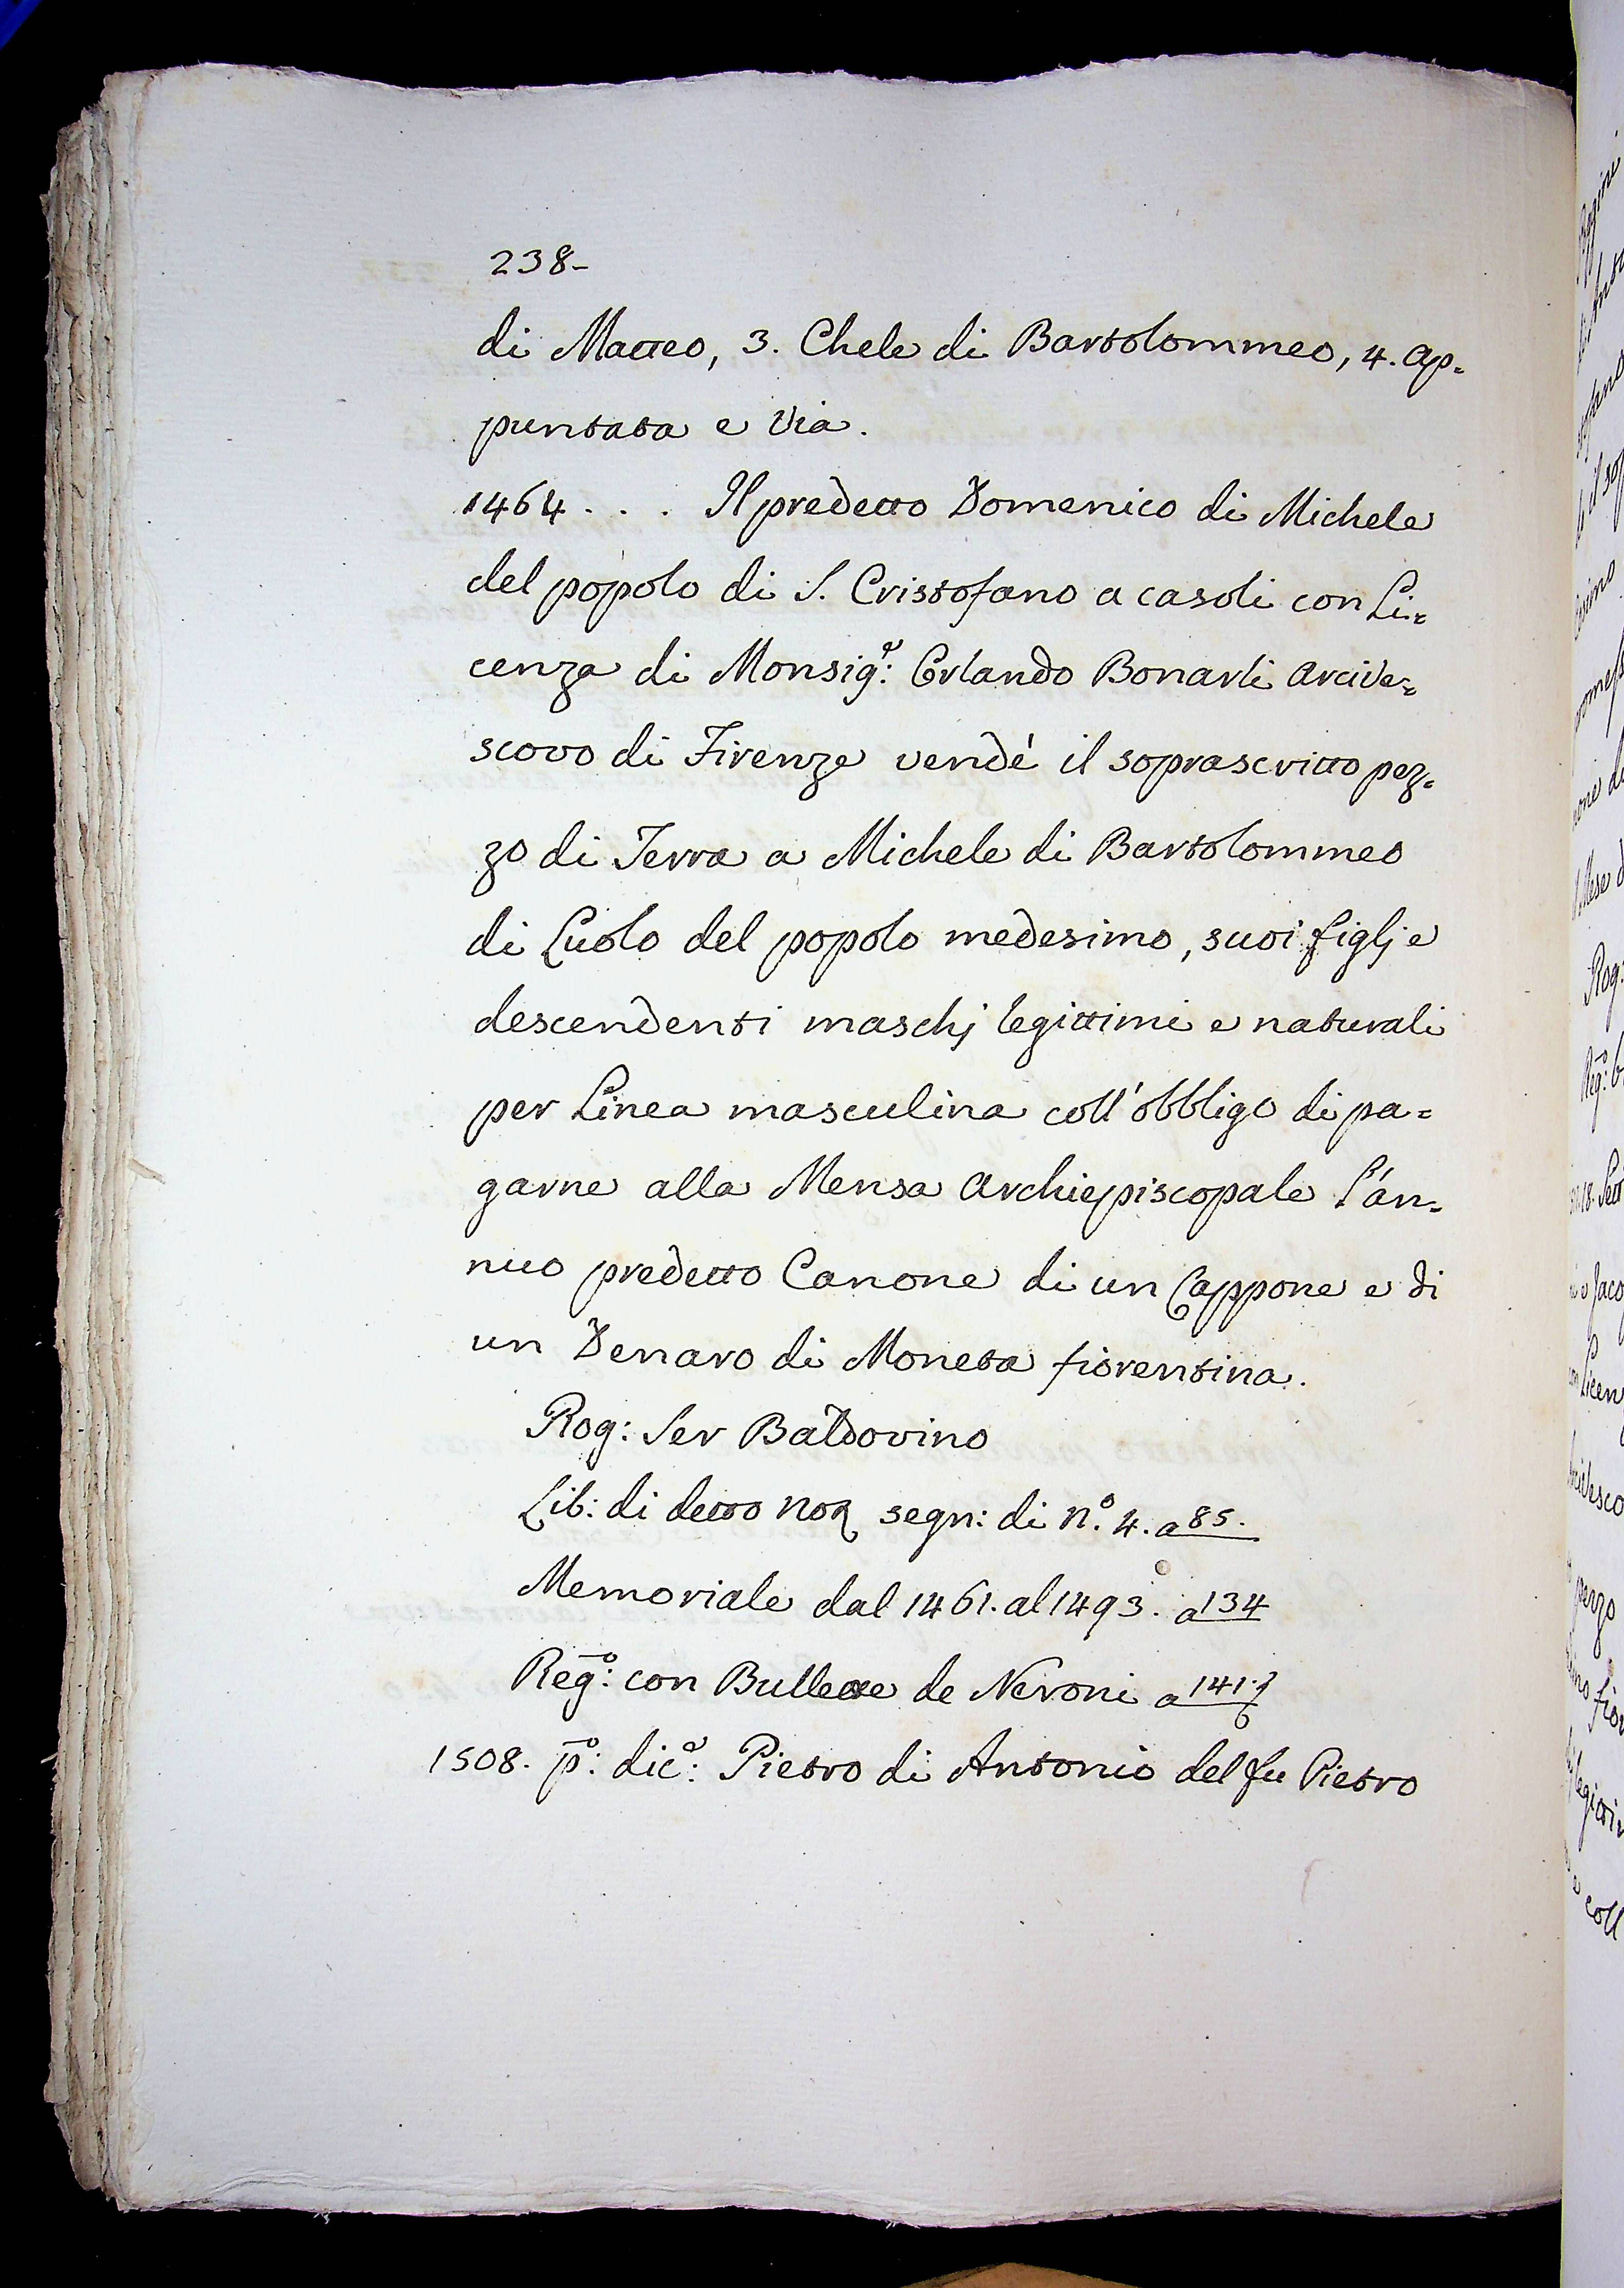 238-
di Matteo, 3. Chele di Bartolommeo, 4. ap=
puntata e Via.
1464 . . . Il predetto Domenico di Michele
del popolo di S. Cristofano a casoli con Li=
cenza di Monsig.e: Orlando Bonarli Arcive=
scovo di Firenze vendè il soprascritto pez=
zo di Terra a Michele di Bartolommeo
di Luolo del popolo medesimo, suoi figlj e
descendenti maschj legittimi e naturali
per Linea masculina coll'obbligo di pa=
garne alla Mensa Archiepiscopale l'an=
nuo predetto Canone di un Cappone e di
un Denaro di Moneta fiorentina.
Rog: Ser Baldovino
Lib: di detto Not segn: di n.º 4. a 85.
Memoriale dal 1461. al 1493. a 134
Reg.º: con Bullette de Neroni a 141.
1508. p.º: dic.e: Pietro di Antonio del fu Pietro